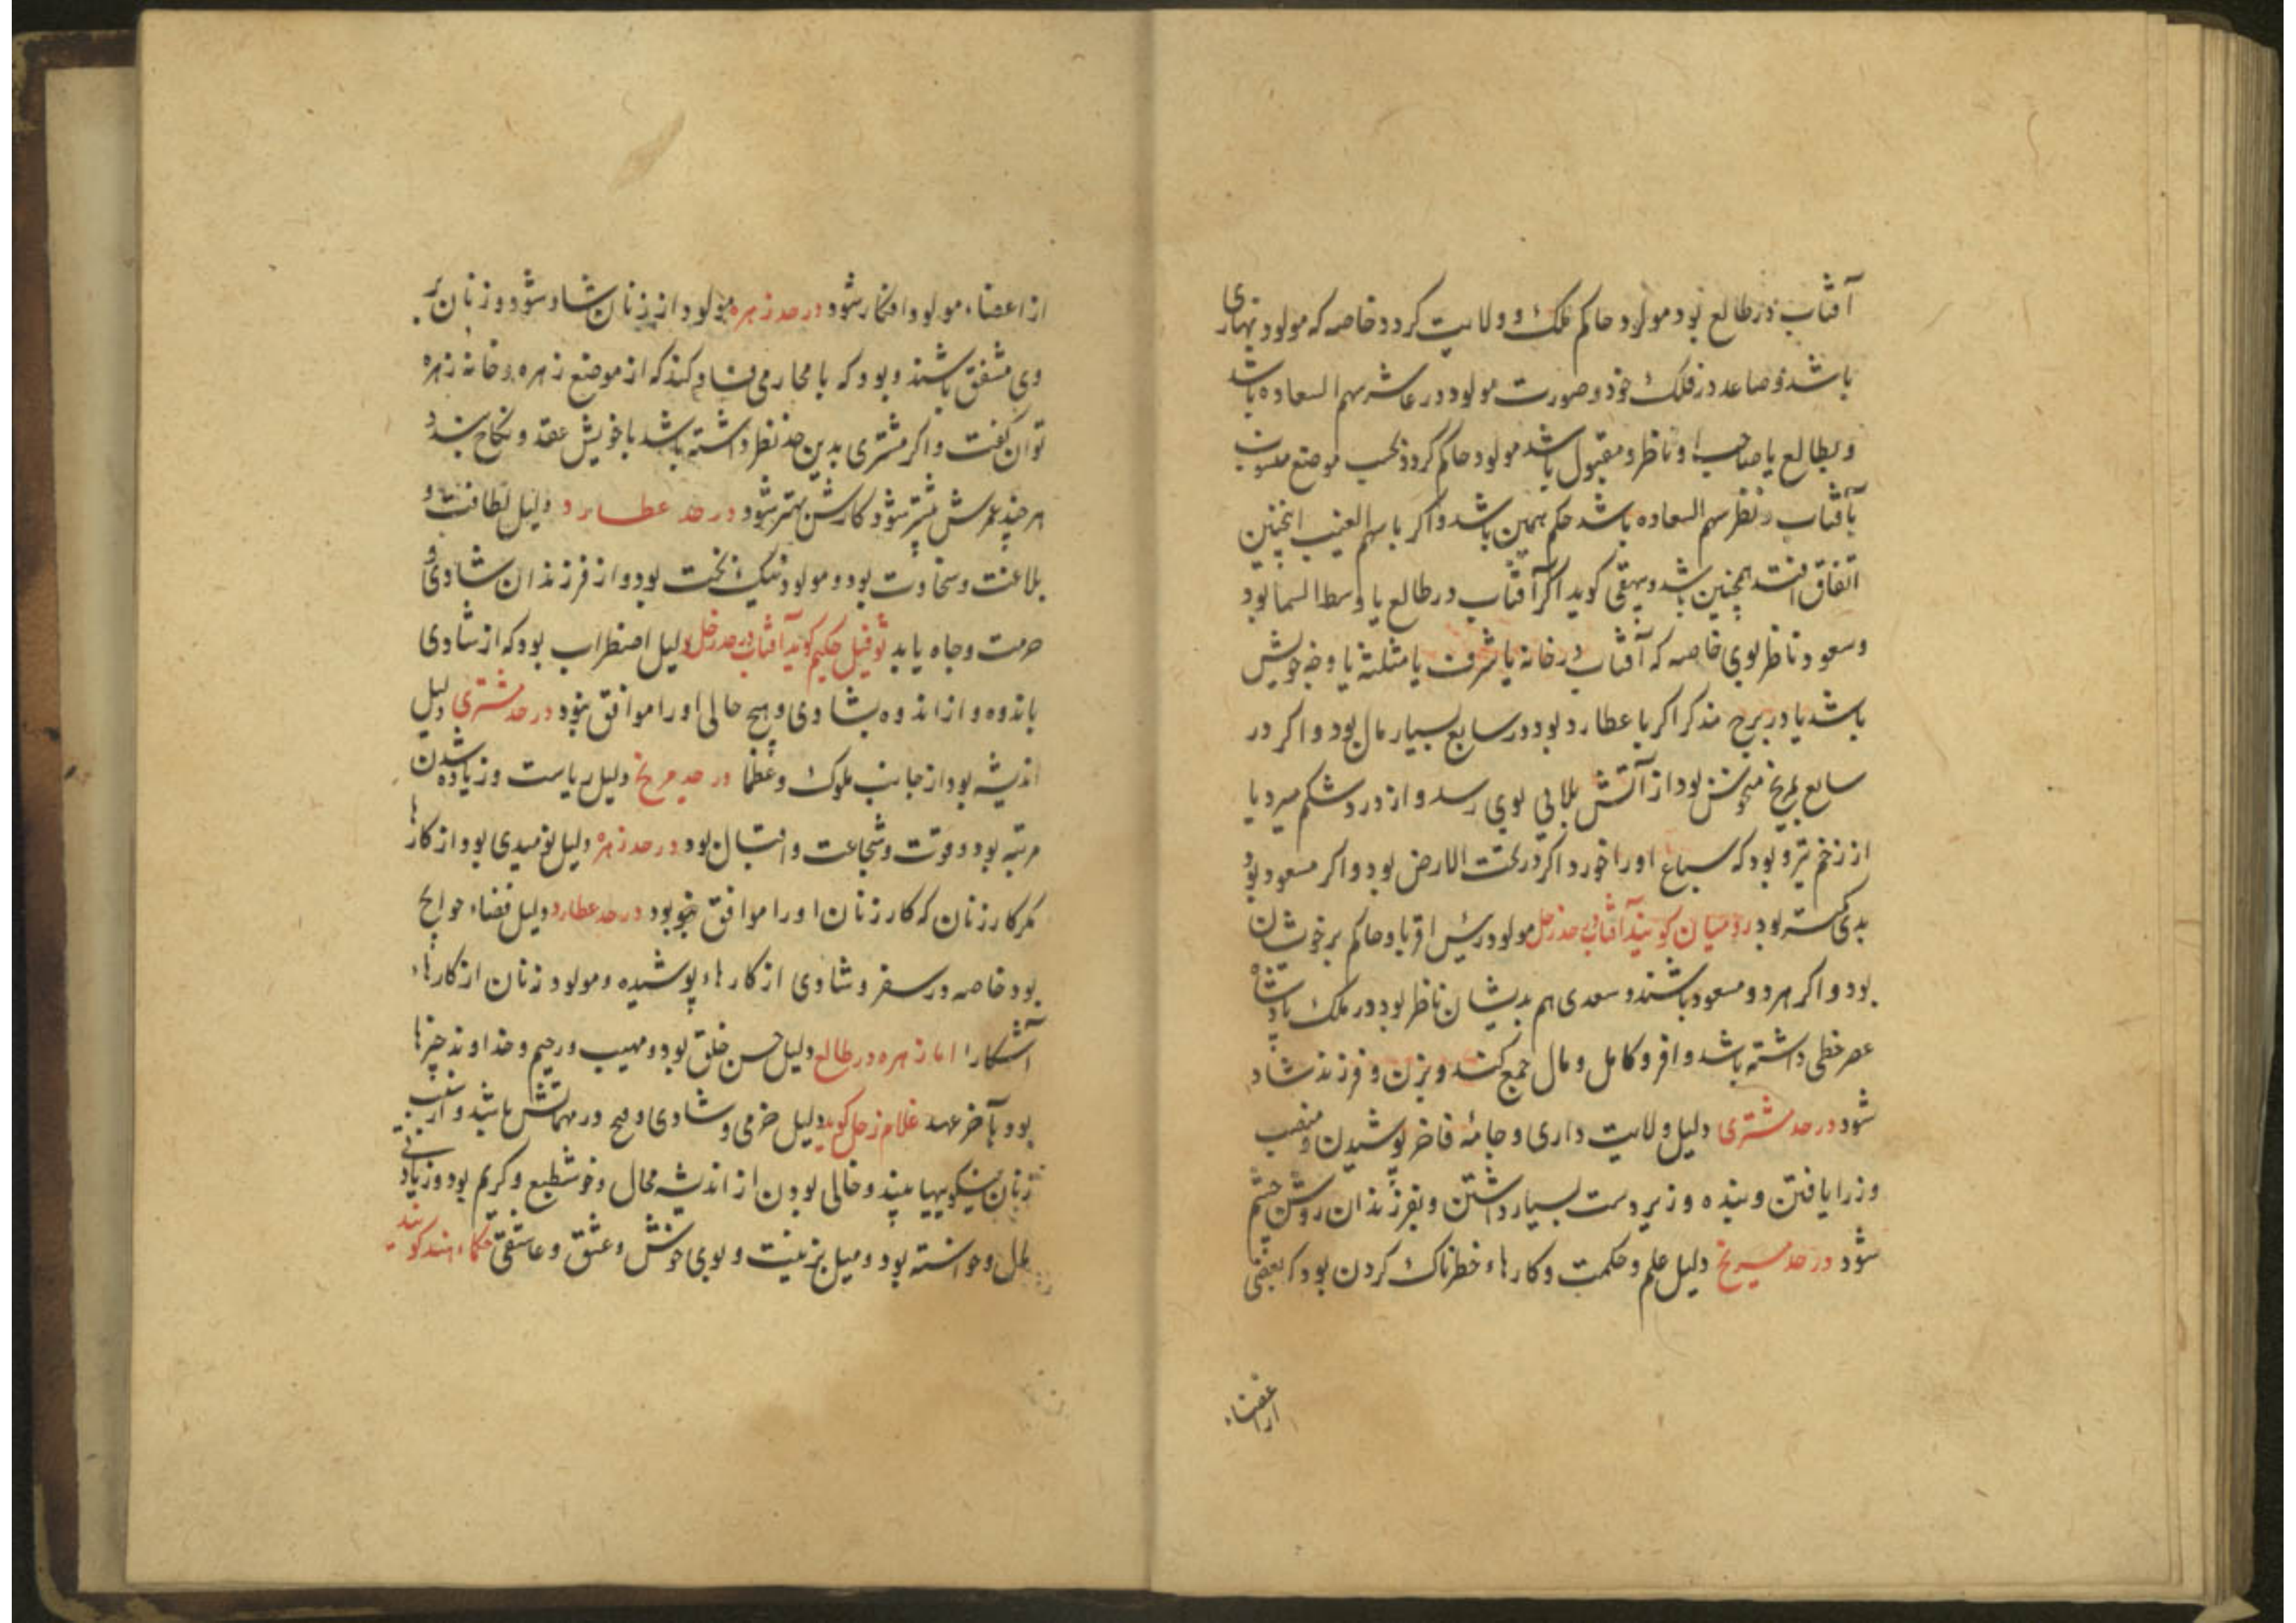 آفتاب در طالع بود مولود حاکم ملک و ولایت کردد خاصه که مولود نهاری
باشد و صاعد در فلک خود و صورت مولود در عاشر سهم السعاده باشد
و بطالع یا صاحب او ناظر و مقبول باشد مولود حاکم کردد بحسب موضع منسوب
بآفتاب و نظر سهم السعاده باشد حکم همین باشد و اکر با سهم الغیب اینچنین
اتفاق افتد همچنین باشد و بیهقی کوید اکر آفتاب در طالع یا وسط السما بود
و سعود ناظر بوی خاصه که آفتاب در خانه یا شرف یا مثلثه یا وجه خویش
باشد یا در برج مذکر اکر با عطارد بود در سابع بسیار مال بود و اکر در
سابع بمریخ منحوش بود از آتش بلایی بوی رسد و از درد شکم میرد یا
از زخم تیر و بود که سباع او را خورد اکر در تحت الارض بود و اکر مسعود بود
بدی کمتر بود رومیان کویند آفتاب در حد زحل مولود رئیس اقربا و حاکم بر خوشان
بود و اکر هر دو مسعود باشند و سعدی هم بدیشان ناظر بود در ملک پادشاه
عصر خطی داشته باشد وافر و کامل و مال جمع کند و بزن و فرزند شاد
شود در حد مشتری دلیل ولایت داری و جامهٔ فاخر پوشیدن و منصب
وزرا یافتن و بنده و زیردست بسیار داشتن و بفرزندان روشن چشم
شود در حد مریخ دلیل علم و حکمت و کارهاء خطرناک کردن بود که بعضی
از اعضاء
از اعضاء مولود افکار شود در حد زهره مولود از زنان شاد شود و زنان بر
وی مشفق باشند و بود که با محارم فساد کند که از موضع زهره و خانه زهره
توان کفت و اکر مشتری بدین حد نظر داشته باشد با خویش عقد و نکاح بندد
هر چند عمرش بیشتر شود کارش بهتر شود در حد عطارد دلیل لطافت و
بلاغت و سخاوت بود و مولود نیک بخت بود و از فرزندان شادی و
حرمت و جاه یابد ثوفیل حکیم کوید آفتاب در حد زحل دلیل اضطراب بود که از شادی
باندوه و از اندوه بشادی و هیچ حالی او را موافق نبود در حد مشتری دلیل
اندیشه بود از جانب ملوک و عظما در حد مریخ دلیل ریاست و زیاده شدن
مرتبه بود و قوت و شجاعت و اقبال بود در حد زهره دلیل نومیدی بود از کارها
مکر کار زنان که کار زنان او را موافق بود در حد عطارد دلیل قضاء حوایج
بود خاصه در سفر و شادی از کارهاء پوشیده و مولود زنان از کارهاء
آشکارا اما زهره در طالع دلیل حسن خلق بود و مهیب و رحیم و خداوند چیزها
بود بآخر عهد غلام زحل کوید دلیل خرمی و شادی و باشد و از
زنان نیکوییها بیند و خالی بودن از اندیشه محال و خوشطبع و کریم بود و
و خواسته بود و میل بزینت و بوی خوش و عشق و عاشقی حکماء هند کویند